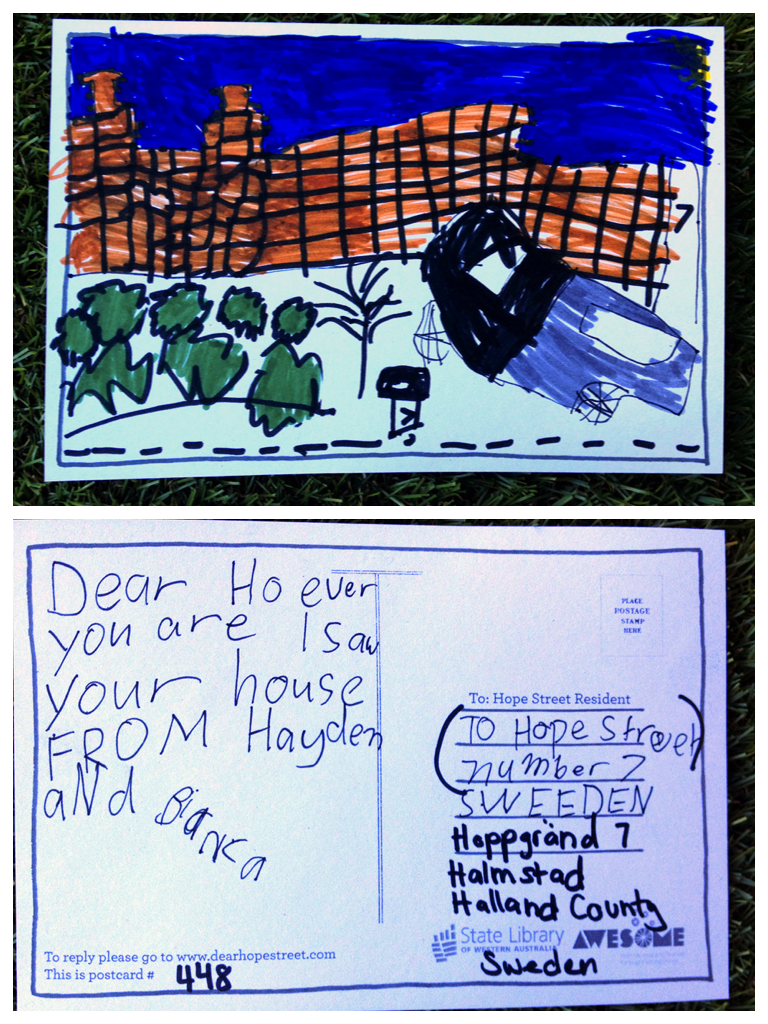 7
7
Dear Ho ever
you are I saw
your house
FROM Hayden
aNd Bianca
PLACE
POSTAGE
STAMP
HERE
To: Hope Street Resident
TO Hope Street
number 7
SWEEDEN
Hoppgränd 7
Halmstad
Halland County
State Library
OF WESTERN AUSTRALIA
AWESOME
Sweden
To reply please go to www.dearhopestreet.com
This is postcard # 448